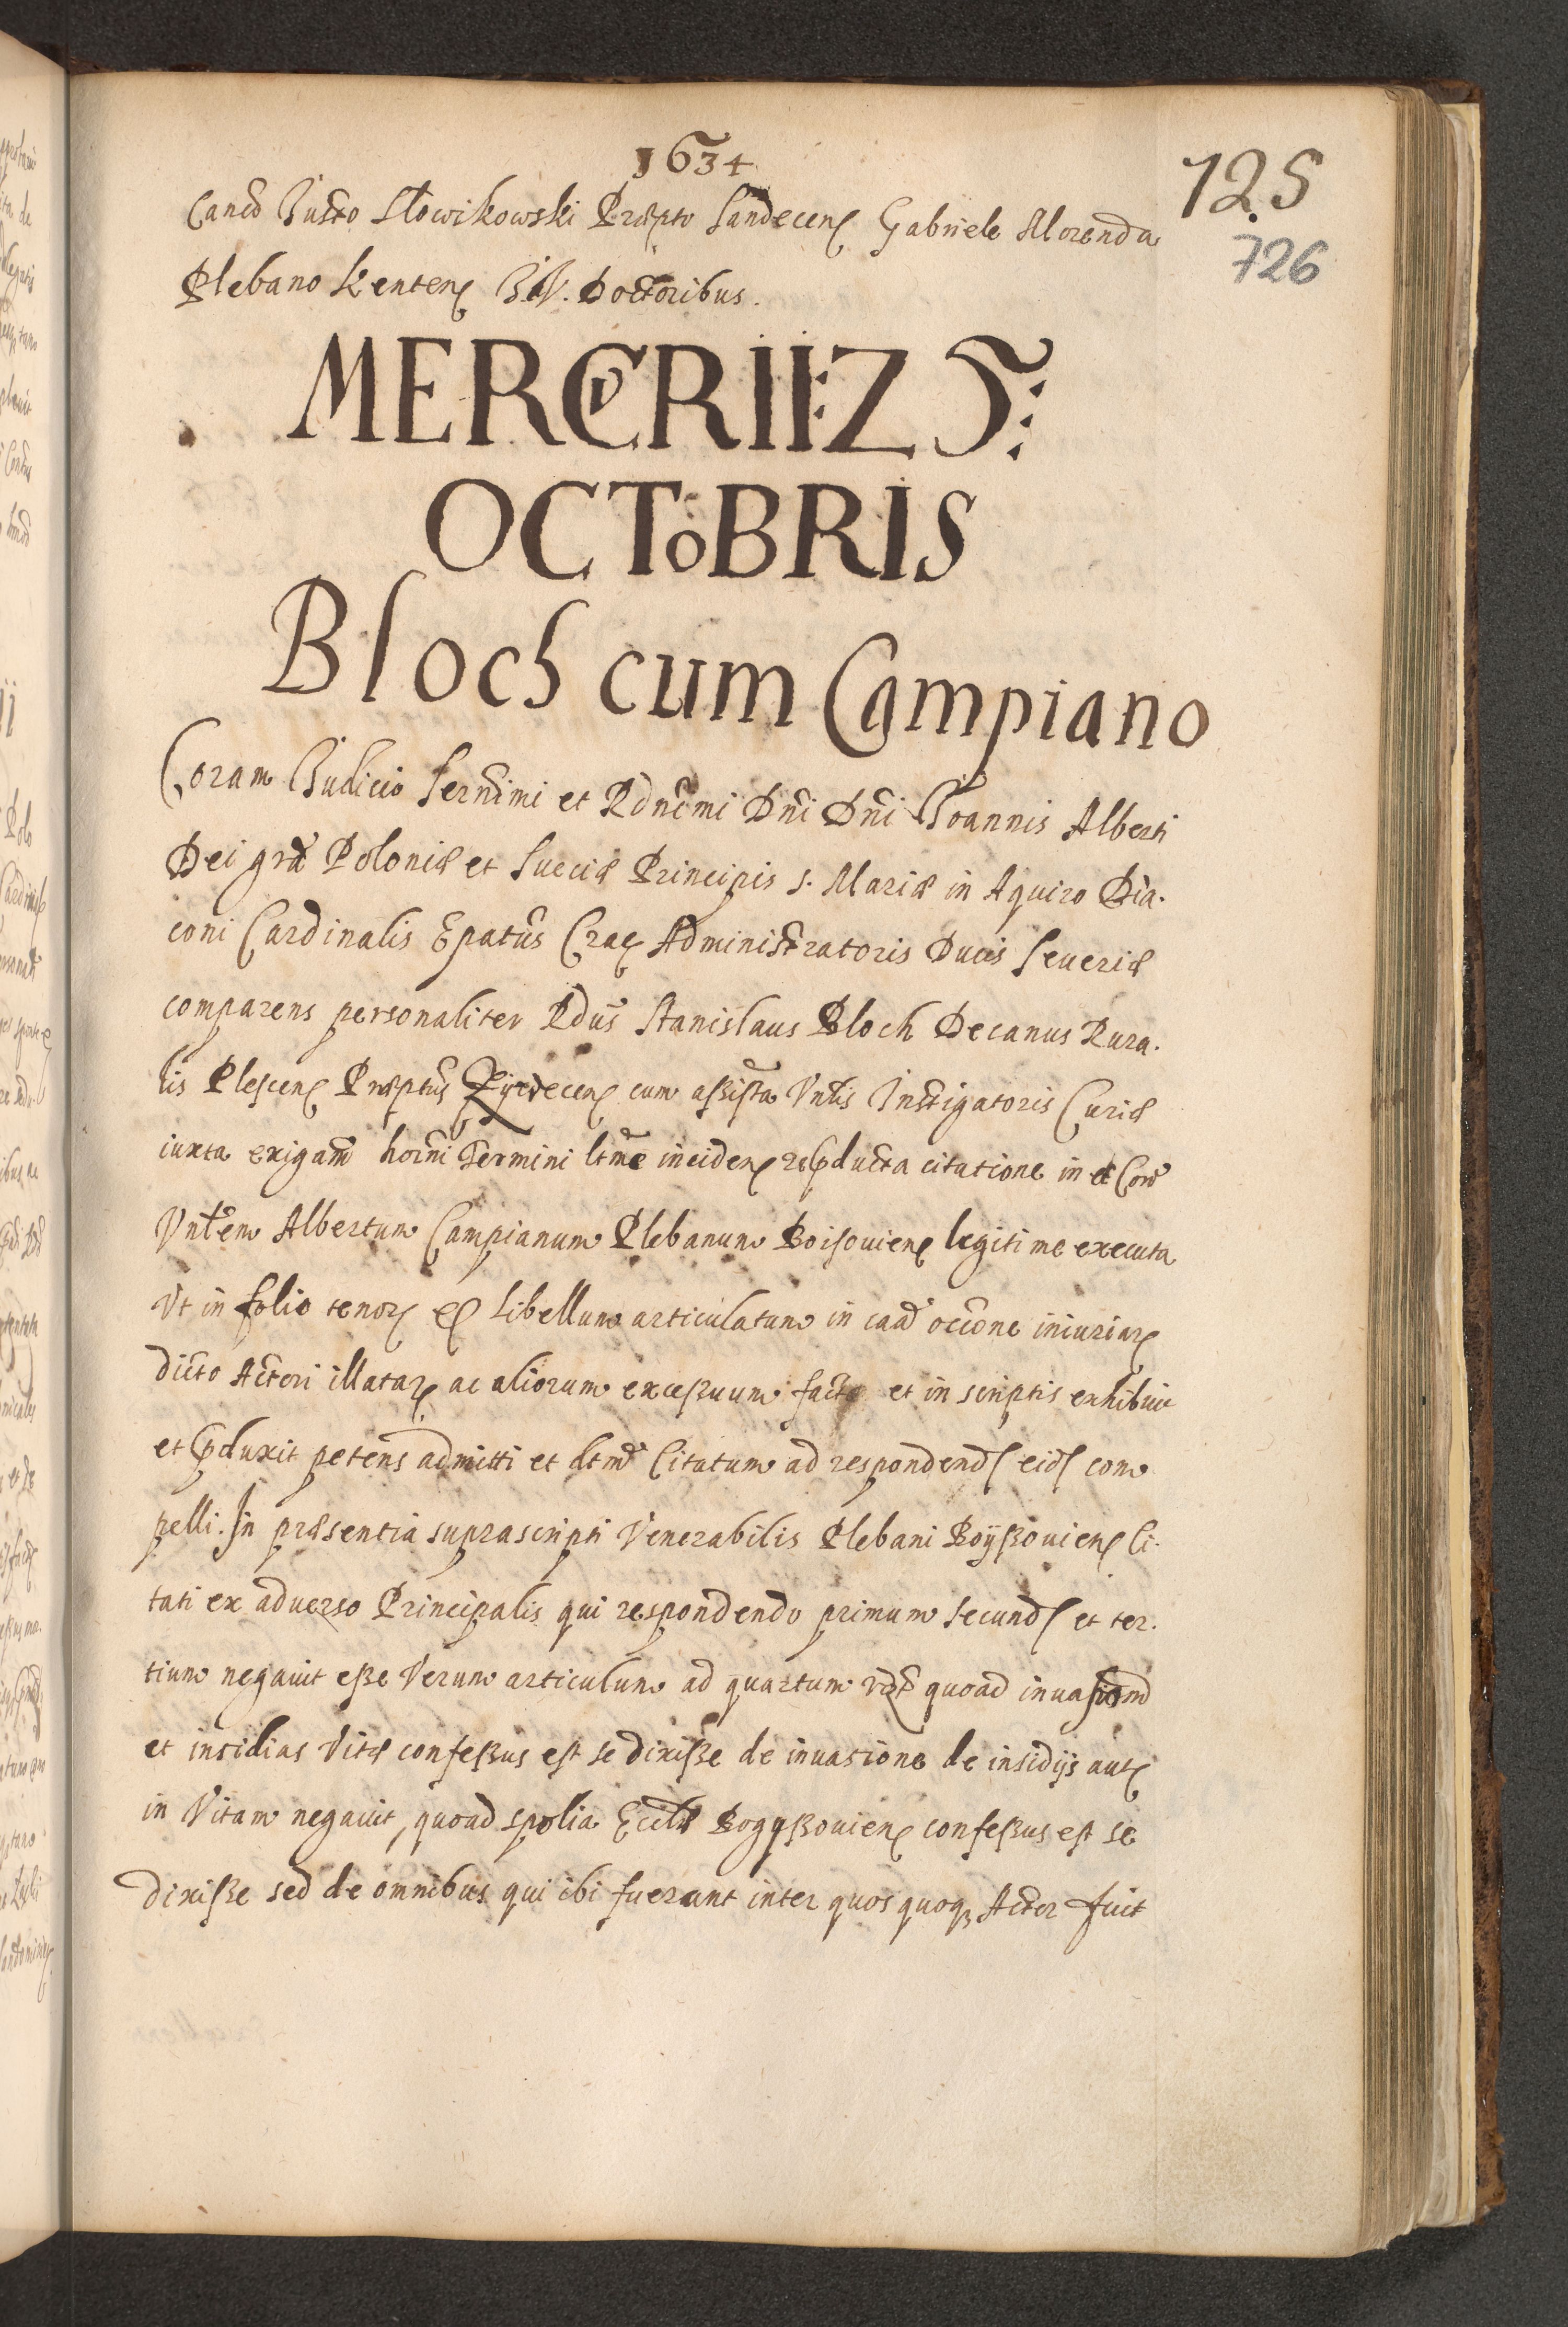 1634
125
726
Canco Justo Słowikowski Præpto Sandecen Gabriele Morenda
Plebano Kenten JV. Doctoribus.
MERCVRII EZ 5:
OCToBRIS
Bloch cum Campiano
Coram Judicio Sernimi et Rdncmi Dni Dni Joannis Alberti
Dei gra Poloniæ et Sueciæ Principis S. Mariæ in Aquiro Dia-
coni Cardinalis Epatus Crac Administratoris Ducis Severiæ
comparens personaliter Rdus Stanislaus Bloch Decanus Rura-
lis Plescen Præptus cum assista Vnlis Instigatoris Curiæ
iuxta exigam horni Termini ltme inciden repducta citatione in et Con
Vnlem Albertum Campianum Plebanum Boisouien legitime executa
Vt in folio tenor Libellum articulatum in caa occone iniuriar
dicto Actori illatar ac aliorum excessuum facto et in scriptis exhibuit
et pduxit petens admitti et dtm Citatum ad respondend eid com
pelli. In præsentia suprascripti Venerabilis Plebani Boyssouien Ci-
tati ex aduerso Principalis qui respondendo primum secund et ter-
tium negauit esse Verum articulum ad quartum vdt quoad inuasionem
et insidias Vitæ confessus est se dixisse de inuasione de insidijs aut
in Vitam negauit, quoad spolia Eccliæ Bogyssouien confessus est se
dixisse sed de omnibus qui ibi fuerunt inter quos quoq Actor fuit